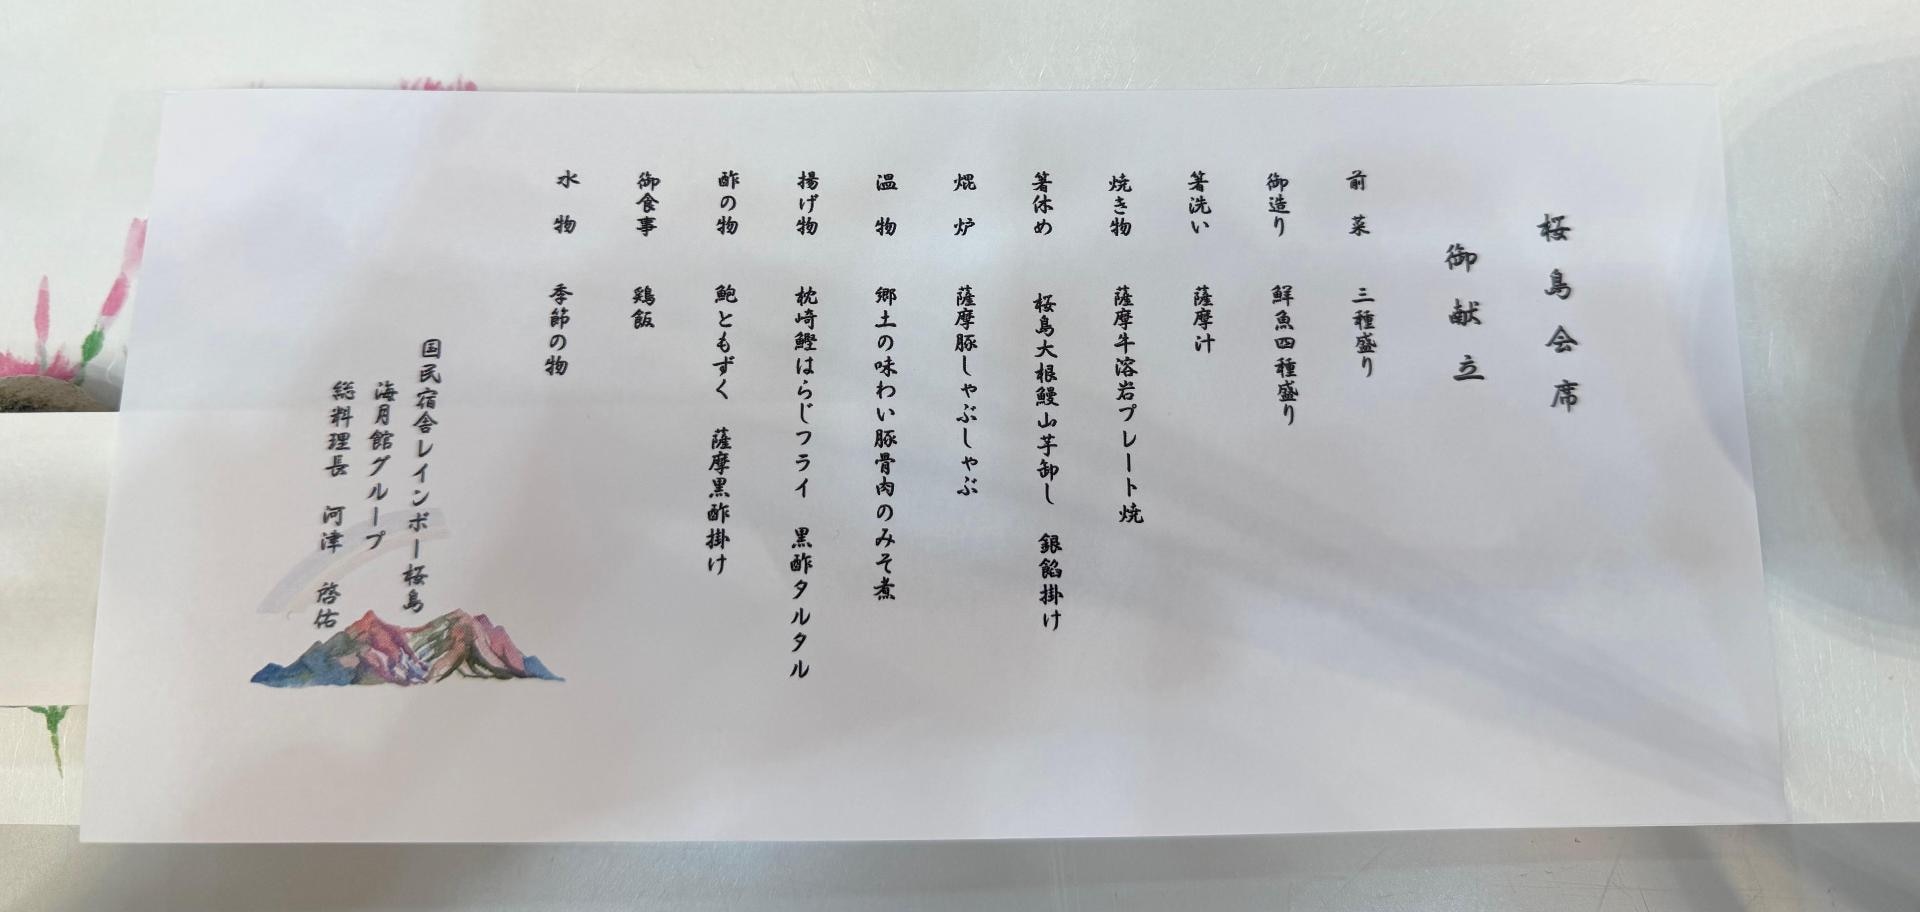 桜島会席
御献立
前菜　三種盛り
御造り　鮮魚四種盛り
箸洗い　薩摩汁
焼き物　薩摩牛溶岩プレート焼
箸休め　桜島大根鰻山芋卸し　銀餡掛け
焜炉　薩摩豚しゃぶしゃぶ
温物　郷土の味わい豚骨肉のみそ煮
揚げ物　枕崎鰹はらじフライ　黒酢タルタル
酢の物　鮑ともずく　薩摩黒酢掛け
御食事　鶏飯
水物　季節の物
国民宿舎レインボー桜島
海月館グループ
総料理長　河津　啓佑